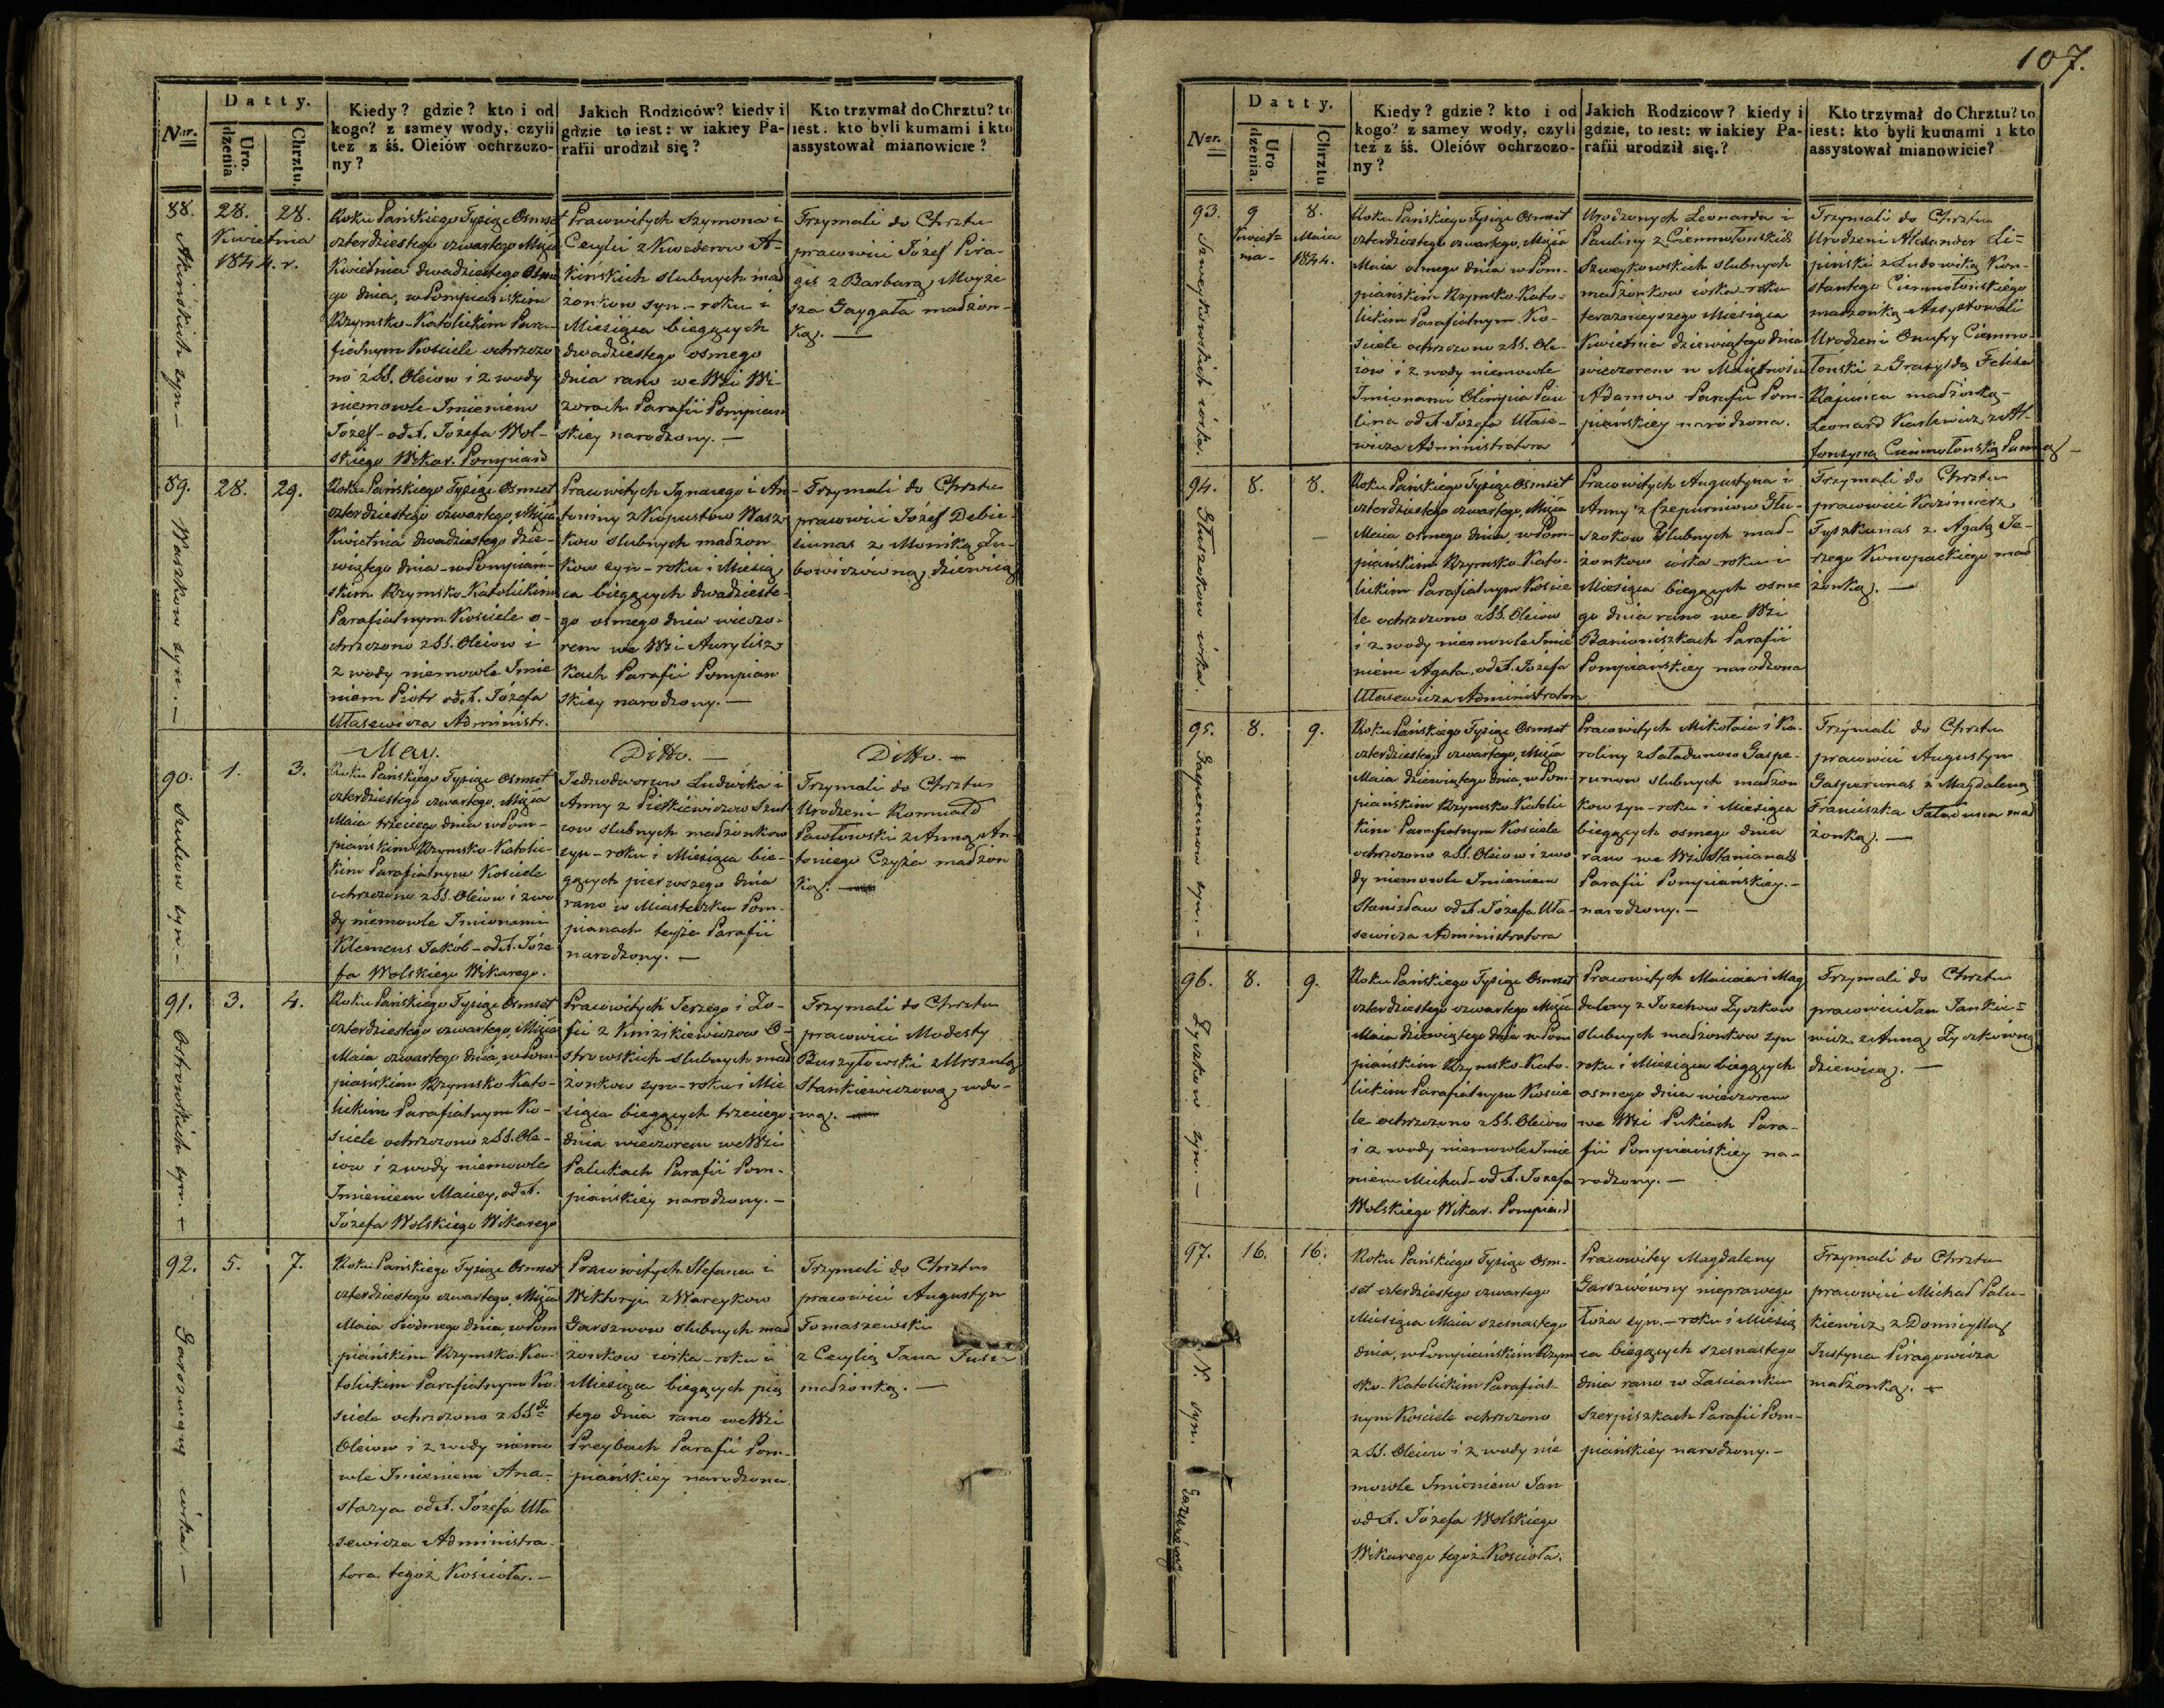 107.
Datty.
Nr.
Uro.
dzenia
Chrztu.
Kiedy? gdzie? kto i od
kogo? z samey wody, czyli
też z śś. Oleiów ochrzczo-
ny?
Jakich Rodziców? kiedy i
gdzie to iest: w iakiey Pa-
rafii urodził się?
Kto trzymał do Chrztu? to
iest: kto byli kumami i kto
assystował mianowicie?
88.
28.
28.
Kwietnia
1844. r.
syn -
Roku Pańskiego Tysiąc Osmset
czterdziestego czwartego Msca
Kwietnia dwadziestego Osme
go dnia, w Pompiańskim
Rzymsko-Katolickim Para-
fialnym Kościele ochrzczo
no z SS. Oleiow i z wody
niemowle Imieniem
Józef - od X. Józefa Wol-
skiego Wikar. Pompiań
Pracowitych Szymona i
Cecylii z Kwederow A-
kińskich slubnych mał
żonkow syn - roku i
Miesiąca bieżących
dwadziestego osmego
dnia rano we Wsi Wi-
zorach Parafii Pompiań
skiey narodzony. -
Trzymali do Chrztu
pracowici Józef Pira-
gis z Barbarą Moyże
sza Gaygała małżon-
ką. -
89.
28.
29.
Waszkow syn. -
Roku Pańskiego Tysiąc Osmset
czterdziestego czwartego, Msca
Kwietnia dwadziestego dzie-
wiątego dnia - w Pompiań-
skim Rzymsko-Katolickim
Parafialnym Kościele o-
chrzczono z SS. Oleiow i
z wody niemowle Imie
niem Piotr od X. Józefa
Ułasewicza Administr.
Pracowitych Ignacego i An-
toniny z Kopustow Wasz
kow slubnych małżon
kow syn - roku i Miesią
ca bieżących dwadzieste-
go osmego dnia wieczo-
rem we Wsi Awrylisz
kach Parafii Pompiań
skiey narodzony. -
Trzymali do Chrztu
pracowici Józef Debie-
ciunas z Moniką Ju-
bowiczówną dziewicą
May.
Ditto. -
Ditto. -
90.
1.
3.
syn -
Roku Pańskiego Tysiąc Osmset
czterdziestego czwartego, Msca
Maia trzeciego dnia w Pom-
piańskim Rzymsko-Katolic-
kim Parafialnym Kościele
ochrzczono z SS. Oleiow i z wo
dy niemowle Imionami
Klemens Jakób - od X. Józe
fa Wolskiego Wikarego.
Jednodworcow Ludwika i
Anny z Pietkiewiczow Szul
cow slubnych małżonkow
syn - roku i Miesiąca bie-
żących pierwszego dnia
rano w Miasteczku Pom-
pianach teyże Parafii
narodzony. -
Trzymali do Chrztu
Urodzeni Romuald
Pawłowski z Anną An-
toniego Czyża małżon
ką. -
91.
3.
4.
Ostrowskich syn. -
Roku Pańskiego Tysiąc Osmset
czterdziestego czwartego, Msca
Maia czwartego dnia, w Pom-
piańskim Rzymsko-Kato-
lickim Parafialnym Ko-
sciele ochrzczono z SS. Ole-
iow i z wody niemowle
Imieniem Maciey, od X.
Józefa Wolskiego Wikarego
Pracowitych Jerzego i Zo-
fii z Kmizikiewiczow O-
strowskich slubnych mał
żonkow syn - roku i Mie
siąca bieżących trzeciego
dnia wieczorem we Wsi
Palukach Parafii Pom-
piańskiey narodzony. -
Trzymali do Chrztu
pracowici Modesty
Burzyłowski z Urszulą
Stankiewiczową, wdo-
wą. -
92.
5.
7.
córka. -
Roku Pańskiego Tysiąc Osmset
czterdziestego czwartego, Msca
Maia siodmego dnia, w Pom
piańskim Rzymsko-Ka-
tolickim Parafialnym Ko-
sciele ochrzczono z SS.
Oleiow i z wody niemo
wle Imieniem Ana-
stazya od X. Józefa Uła
sewicza Administra-
tora tegoż Kościoła. -
Pracowitych Stefana i
Wiktoryi z Wareykow
Garszwow slubnych mał
żonkow córka - roku i
Miesiąca bieżących pią
tego dnia rano we Wsi
Preybach Parafii Pom-
piańskiey narodzona.
Trzymali do Chrztu
pracowici Augustyn
Tomaszewski
z Cecylią Jana
małżonką. -
Datty.
Nr.
Uro
dzenia.
Chrztu
Kiedy? gdzie? kto i od
kogo? z samey wody, czyli
też z śś. Oleiów ochrzczo-
ny?
Jakich Rodzicow? kiedy i
gdzie, to iest: w iakiey Pa-
rafii urodził się.?
Kto trzymał do Chrztu? to
iest: kto byli kumami i kto
assystował mianowicie?
93.
9
Kwiet=
nia -
8.
Maia
1844.
Szweykowskich córka.
Roku Pańskiego Tysiąc Osmset
czterdziestego czwartego, Msca
Maia osmego dnia w Pom-
piańskim Rzymsko-Kato-
lickim Parafialnym Ko-
sciele ochrzczono z SS. Ole-
iow i z wody niemowle
Imionami Olimpia Pau
lina od X. Józefa Ułase-
wicza Administratora
Urodzonych Leonarda i
Pauliny z Ciemnołonskich
Szweykowskich slubnych
małżonkow córka - roku
terazneyszego Miesiąca
Kwietnia dziewiątego dnia
wieczorem w Maiętnosci
Adamow Parafii Pom-
piańskiey narodzona.
Trzymali do Chrztu
Urodzeni Alexander Li=
piński z Ludowiką Kon-
stantego Ciemnołońskiego
małżonką Assystowali
Urodzeni Onufry Ciemno-
łoński z Grazyldą Felixa
małżonką -
Leonard Karlewicz z Al-
fonzyną Ciemnołońską Panną -
94.
8.
8.
Głuszokow córka.
Roku Pańskiego Tysiąc Osmset
czterdziestego czwartego, Msca
Maia osmego dnia, w Pom-
piańskim Rzymsko-Kato-
lickim Parafialnym Koscie
le ochrzczono z SS. Oleiow
i z wody niemowle Imie
niem Agata, od X. Józefa
Ułasewicza Administratora
Pracowitych Augustyna i
Anny z Czepurniow Głu-
szokow slubnych mał-
żonkow córka - roku i
Miesiąca bieżących osme
go dnia rano we Wsi
Banioniszkach Parafii
Pompiańskiey narodzona
Trzymali do Chrztu
pracowici Kazimierz
Tyszkunas z Agatą Je-
rzego Konopackiego mał
żonką. -
95.
8.
9.
Gasperunow syn. -
Roku Pańskiego Tysiąc Osmset
czterdziestego czwartego, Msca
Maia dziewiątego dnia, w Pom-
piańskim Rzymsko-Katolic
kim Parafialnym Kosciele
ochrzczono z SS. Oleiow i z wo
dy niemowle Imieniem
Stanisław od X. Józefa Uła-
sewicza Administratora
Pracowitych Mikołaia i Ka-
roliny z Saładunow Gaspe-
runow slubnych małżon
kow syn - roku i Miesiąca
bieżących osmego dnia
rano we Wsi Stanianach
Parafii Pompiańskiey. -
narodzony. -
Trzymali do Chrztu
pracowici Augustyn
Gasperunas z Magdaleną
Franciszka Saładuna mał
żonką. -
96.
8.
9.
Zyszkow syn. -
Roku Pańskiego Tysiąc Osmset
czterdziestego czwartego Msca
Maia dziewiątego dnia w Pom
piańskim Rzymsko-Kato-
lickim Parafialnym Koscie
le ochrzczono z SS. Oleiow
i z wody niemowle Imie
niem Michał - od X. Jozefa
Wolskiego Wikar. Pompiań
Pracowitych Macieia i Mag
daleny z Jozehow Zyszkow
slubnych małżonkow syn
roku i Miesiąca bieżących
osmego dnia wieczorem
we Wsi Pukiach Para-
fii Pompiańskiey na-
rodzony. -
Trzymali do Chrztu
pracowici Jan Jankie=
wicz z Anną Zyszkówną
dziewicą. -
97.
16.
16.
N. syn.
Roku Pańskiego Tysiąc Osm-
set czterdziestego czwartego
Miesiąca Maia szesnastego
dnia, w Pompiańskim Rzym
sko-Katolickim Parafial-
nym Kosciele ochrzczono
z SS. Oleiow i z wody nie
mowle Imieniem Jan
od X. Józefa Wolskiego
Wikarego tegoż Kościoła.
Pracowitey Magdaleny
Garszwówny nieprawego
łoża syn. - roku i Miesią
ca bieżących szesnastego
dnia rano w Zascianku
Szerpiszkach Parafii Pom-
piańskiey narodzony. -
Trzymali do Chrztu
pracowici Michał Palu-
kiewicz z Domicyllą
Justyna Piragowicza
małżonką. -